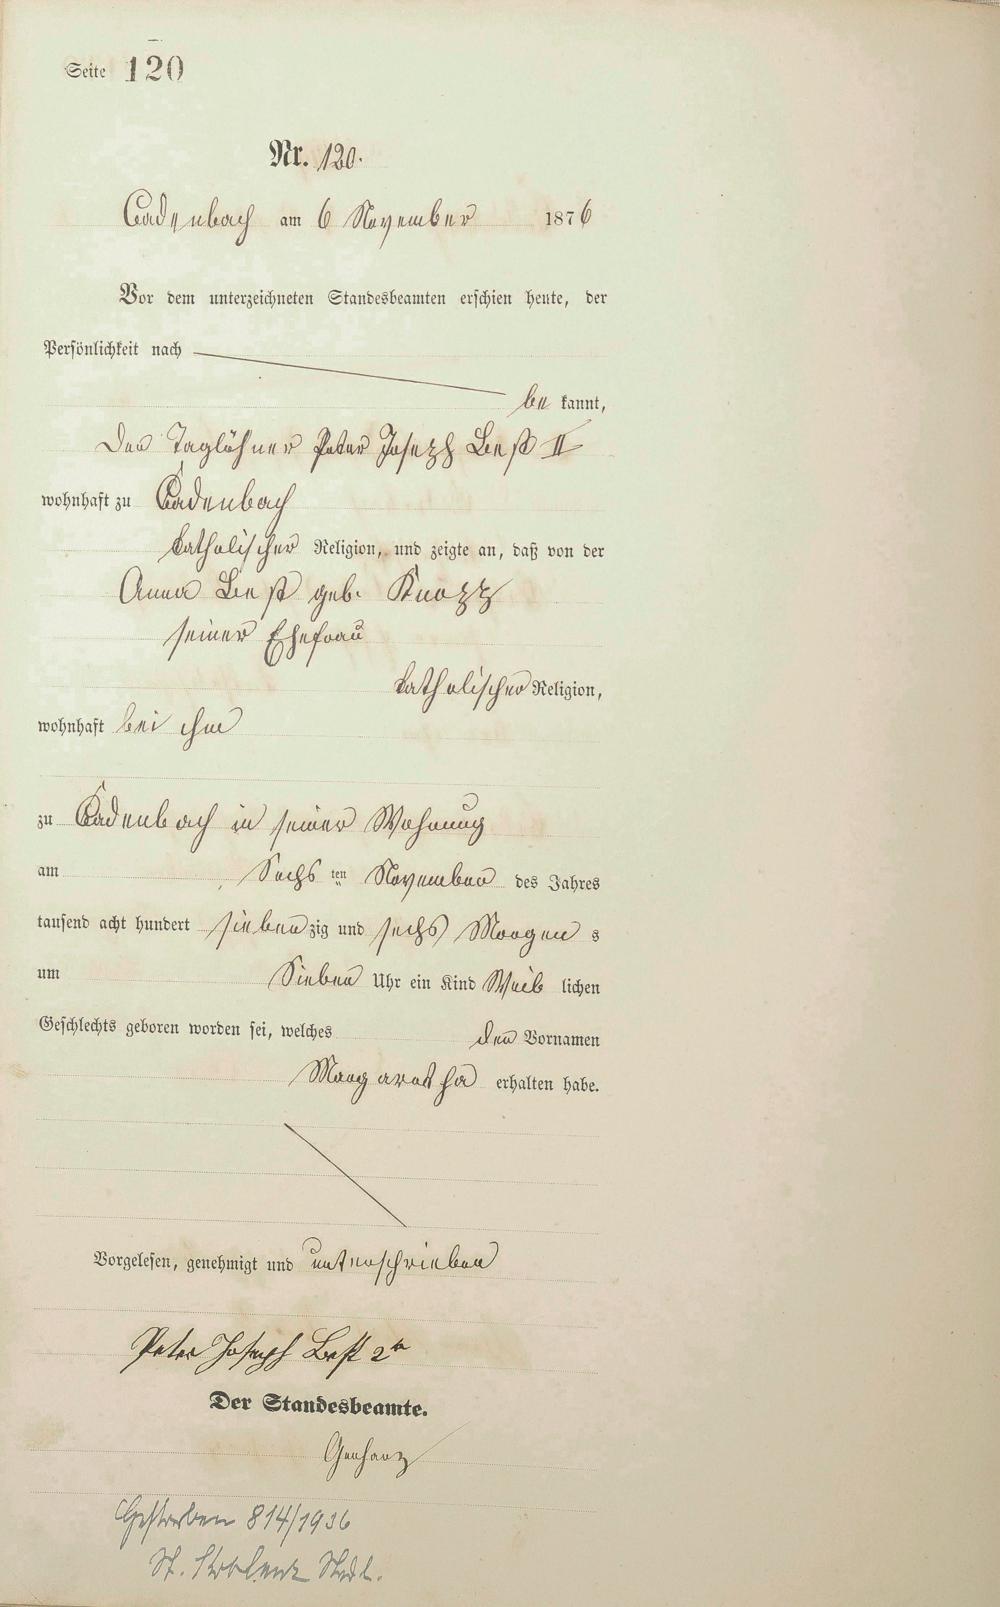 Seite 120
Nr. 120.
Cadenbach am 6 November 1876
Vor dem unterzeichneten Standesbeamten erschien heute, der
Persönlichkeit nach
be kannt,
Der Taglöhner Peter Joseph Best II
wohnhaft zu Cadenbach
katholischer Religion, und zeigte an, daß von der
Anna Best geb. Knopp
seiner Ehefrau
katholischer Religion,
wohnhaft bei ihm
zu Cadenbach in seiner Wohnung
am Sechs ten November des Jahres
tausend acht hundert sieben zig und sechs Morgen s
um Sieben Uhr ein Kind Weib lichen
Geschlechts geboren worden sei, welches den Vornamen
Margaretha erhalten habe.
Vorgelesen, genehmigt und unterschrieben
Peter Joseph Best 2te
Der Standesbeamte.
Gestorben 814/1936
St. Koblenz